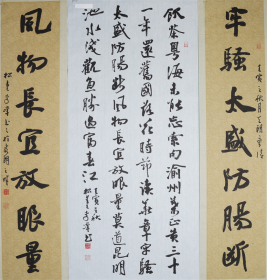 牢騷太盛防腸断
飲茶粵海未能忘索句渝州葉正黃三十
一年還舊國落花時節讀華章牢騷
太盛防腸断風物長宜放眼量莫道昆明
池水淺觀魚勝過富春江
壬寅之秋
風物長宜放眼量